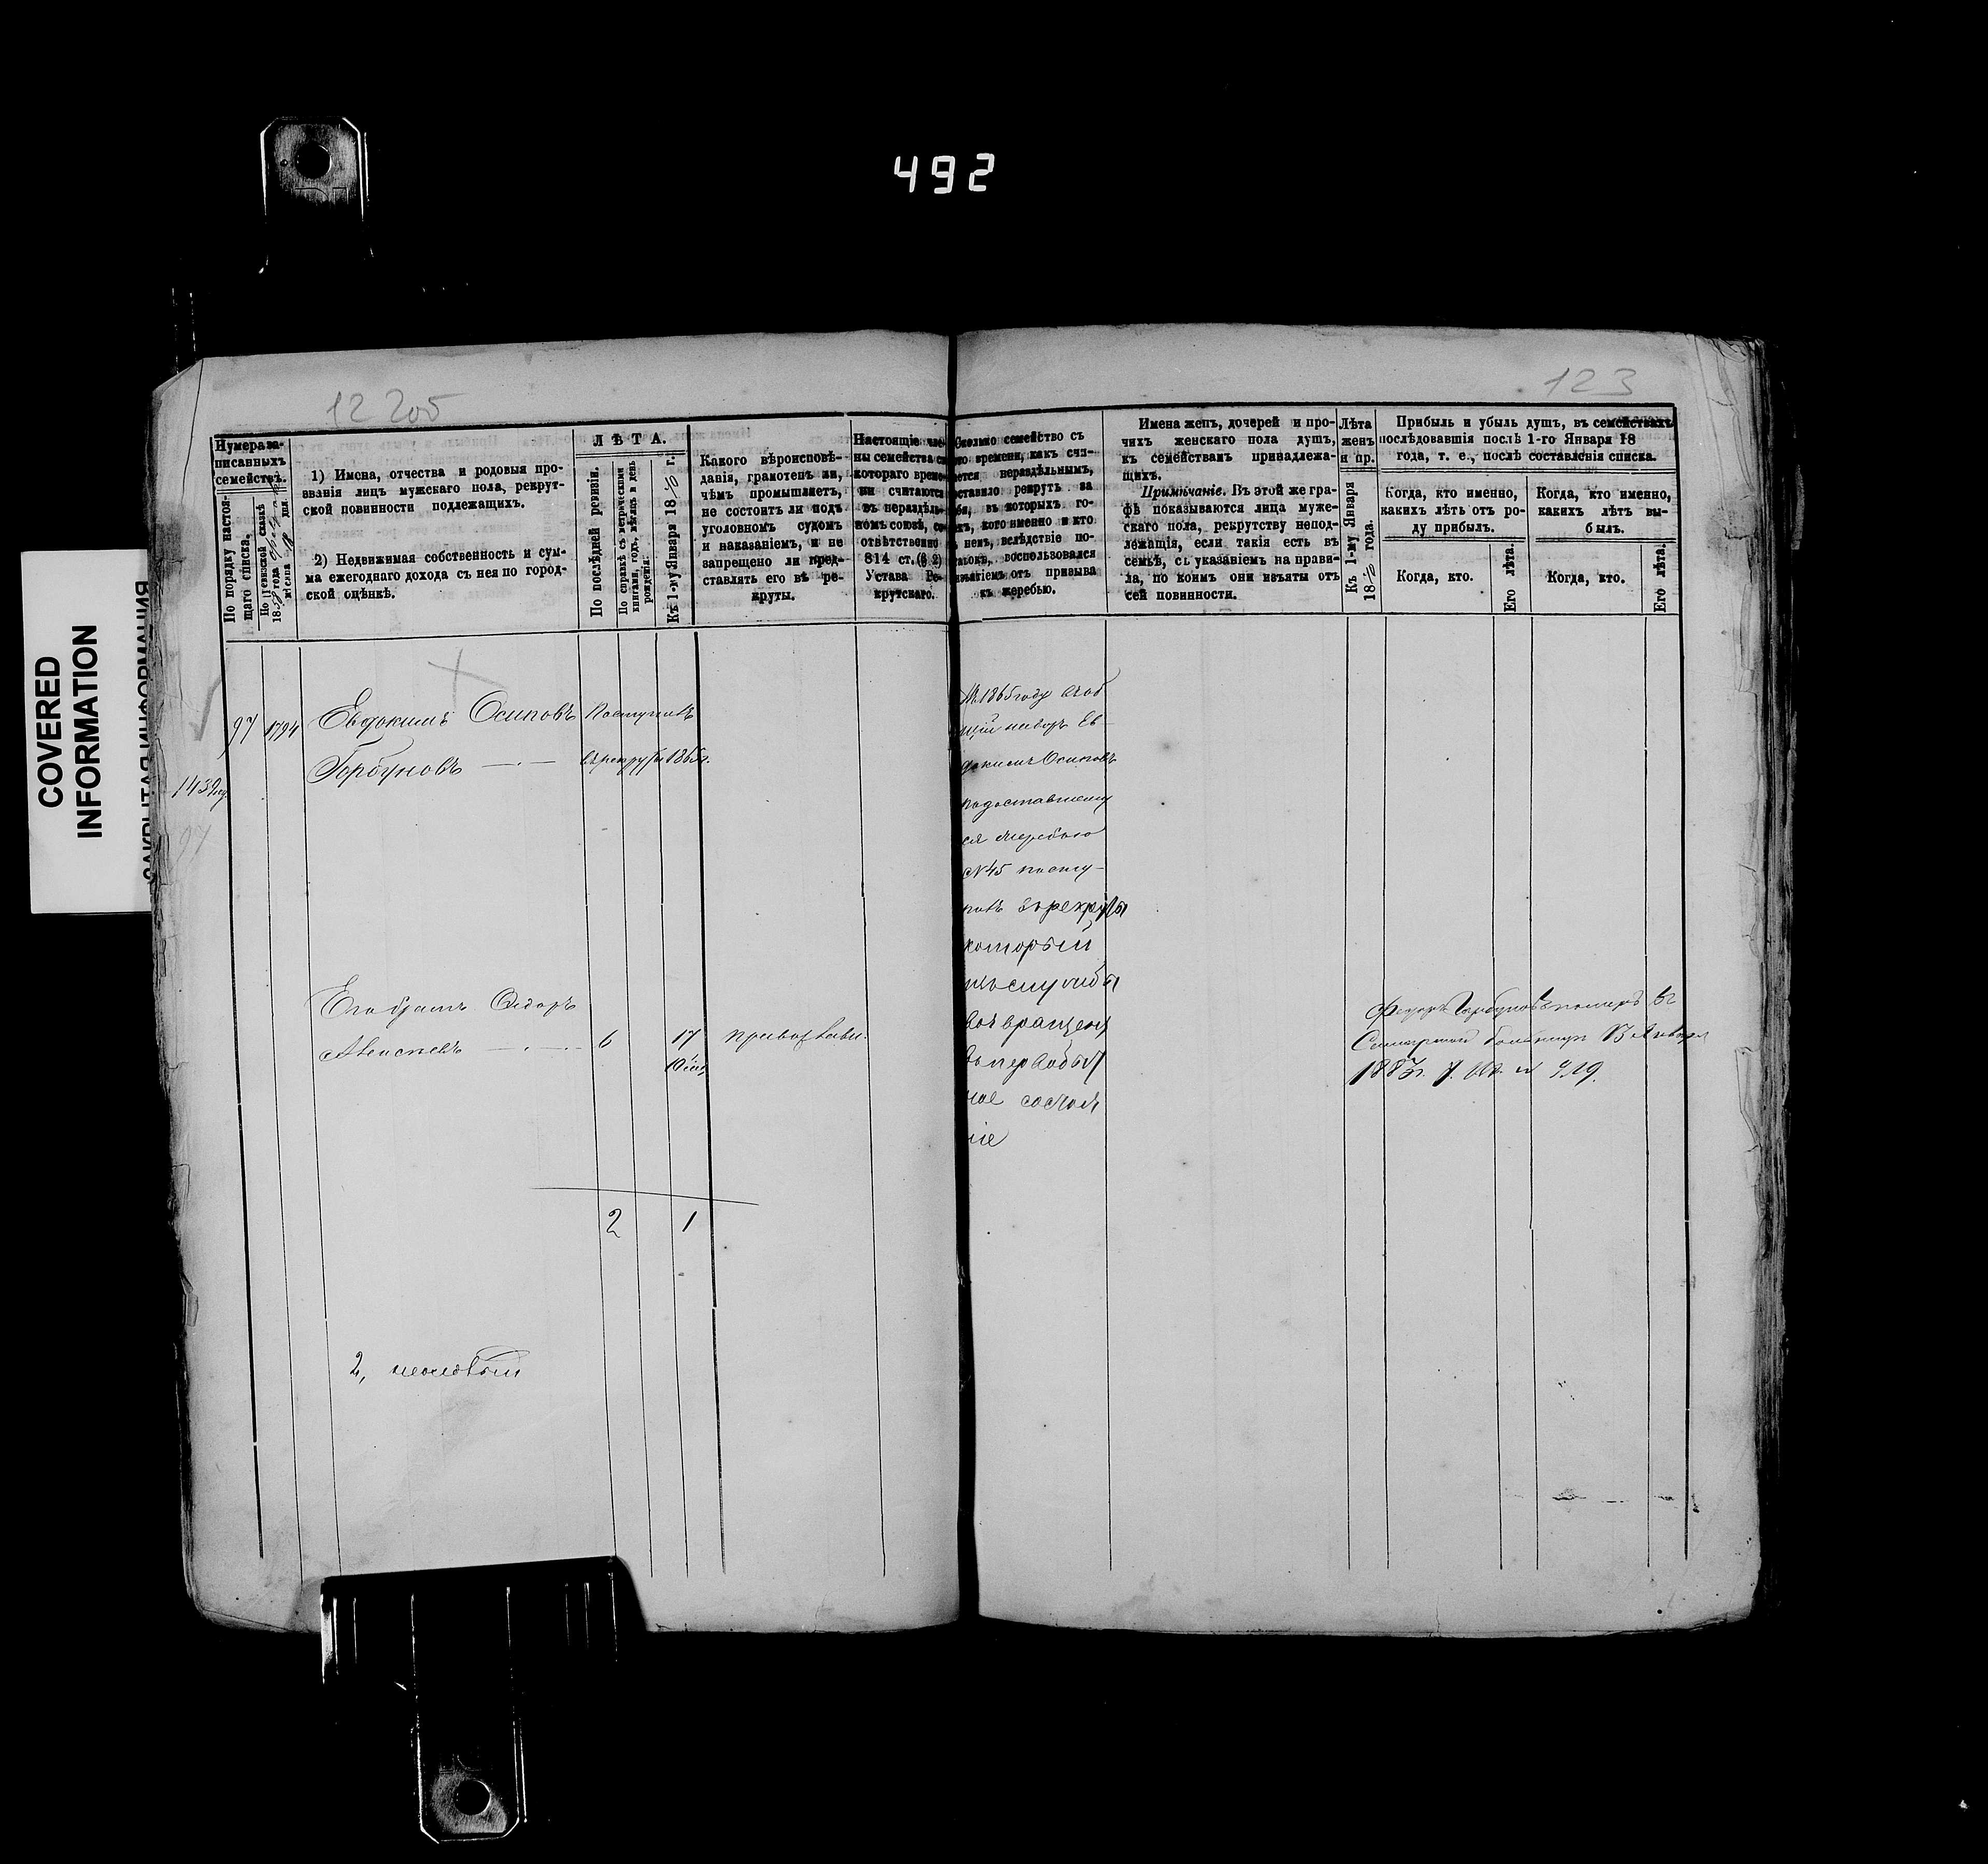 492
COVERED
INFORMATION
ЗАКРЫТАЯ ИНФОРМАЦИЯ
12 205
123
Нумера за-
писанныхъ
семействъ.
По порядку настоя-
щаго списка.
По ревизской сказкѣ
18 года
мѣсяца дня
1) Имена, отчества и родовыя про-
званія лицъ мужскаго пола, рекрут-
ской повинности подлежащихъ.
2) Недвижимая собственность и сум-
ма ежегоднаго дохода съ нея по город-
ской оцѣнкѣ.
ЛѢТА.
По послѣдней ревизіи.
По справкѣ съ метрическими
книгами, годъ, мѣсяцъ и день
рожденія.
Къ 1-му Января 1870 г.
Какого вѣроисповѣ-
данія, грамотенъ ли,
чѣмъ промышляетъ,
не состоитъ ли подъ
уголовномъ судомъ
и наказаніемъ, и не
запрещено ли пред-
ставлять его въ ре-
круты.
Настоящіе чле-
ны семейства съ
котораго време-
ни считаются
въ нераздѣль-
номъ союзѣ, со-
отвѣтственно
814 ст. (§ 2)
Устава Ре-
крутскаго.
Сколько семейство съ
того времени, какъ счи-
тается нераздѣльнымъ,
оставило рекрутъ за
себя, въ которыхъ го-
дахъ, кого именно и кто
въ немъ, вслѣдствіе по-
воспользовался
изъятіемъ отъ призыва
къ жеребью.
Имена женъ, дочерей и про-
чихъ женскаго пола душъ,
къ семействамъ принадлежа-
щихъ.
Примѣчаніе. Въ этой же гра-
фѣ показываются лица муже-
скаго пола, рекрутству непод-
лежащія, если такія есть въ
семьѣ, съ указаніемъ на прави-
ла, по коимъ они изъяты отъ
сей повинности.
Лѣта
женъ
и пр.
Къ 1-му Января
1870 года.
Прибыль и убыль душъ, въ семействахъ
послѣдовавшія послѣ 1-го Января 18
года, т. е., послѣ составленія списка.
Когда, кто именно,
какихъ лѣтъ отъ ро-
ду прибылъ.
Когда, кто именно,
какихъ лѣтъ вы-
былъ.
Когда, кто.
Его лѣта.
Когда, кто.
Его лѣта.
97 1794 Евдокимъ Осиповъ Поступилъ
Горбуновъ въ рекруты 1865 г.
1439
97
Его братъ Ѳедоръ
6 17
2 1
2,
Въ 1865 году въ об
щій наборъ Ев
докимъ Осиповъ
по доставшему
ся жеребью
№ 45 посту-
пилъ въ рекруты
который
изъ службы
возвращенъ
въ первобыт
ное состоя
ніе
Федоръ Горбуновъ померъ въ
Самарской больницѣ Января